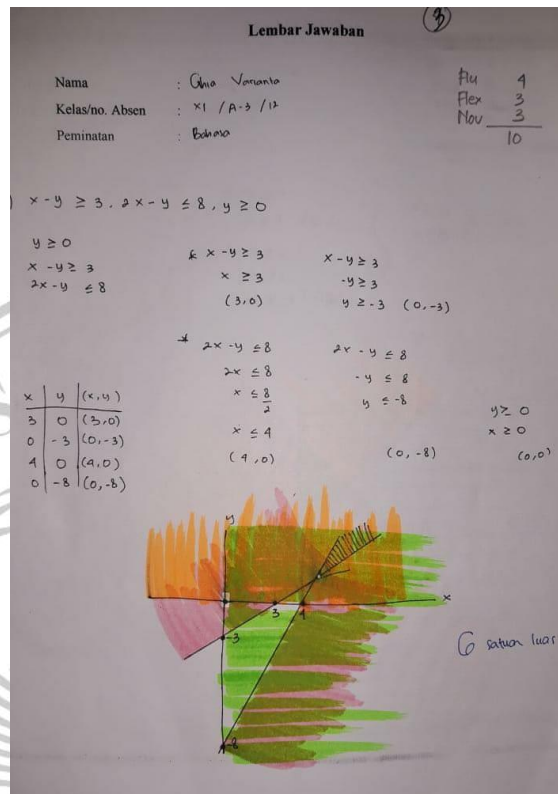 3
Lembar Jawaban
Nama : Ghia Varianta
Kelas/no. Absen : XI / A-3 / 12
Peminatan : Bahasa
Flu 4
Flex 3
Nov 3
10
) x - y ≥ 3, 2x - y ≤ 8, y ≥ 0
y ≥ 0
x - y ≥ 3
2x - y ≤ 8
x - y ≥ 3
x ≥ 3
(3,0)
x - y ≥ 3
-y ≥ 3
y ≥ -3 (0,-3)
* 2x - y ≤ 8
2x ≤ 8
x ≤ 8/2
x ≤ 4
(4,0)
2x - y ≤ 8
-y ≤ 8
y ≤ -8
(0,-8)
y ≥ 0
x ≥ 0
(0,0)
x | y | (x,y)
3 | 0 | (3,0)
0 | -3 | (0,-3)
4 | 0 | (4,0)
0 | -8 | (0,-8)
y
x
3
4
-3
-8
6 satuan luas